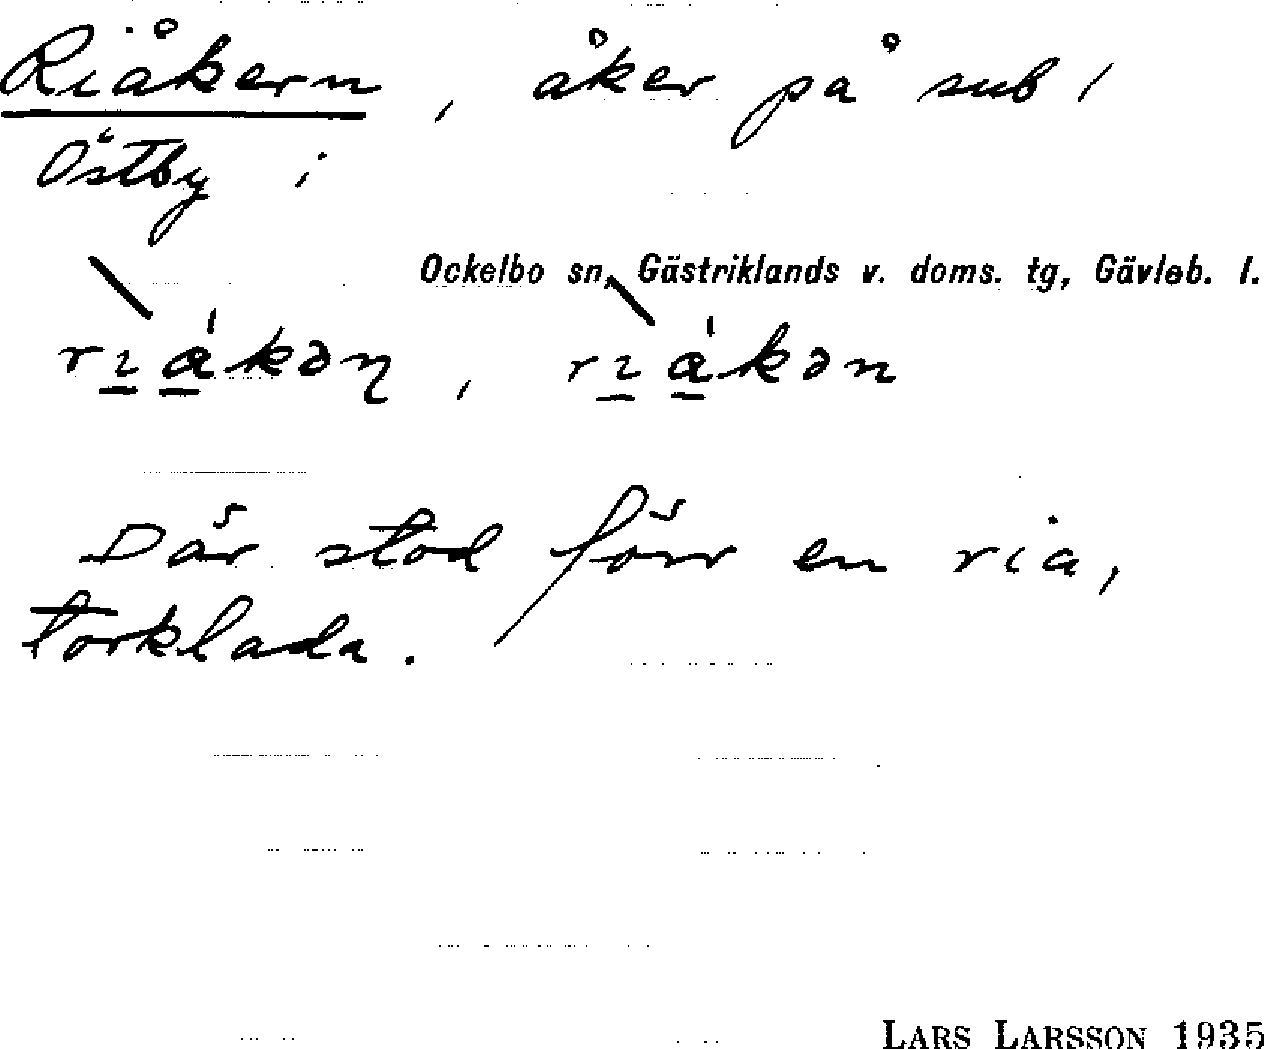 Riåkern, åker på sub 1
Östby i
Ockelbo sn, Gästriklands v. doms. tg, Gävleb. l.
Där stod förr en ria,
torklada.
LARS LARSSON 1935